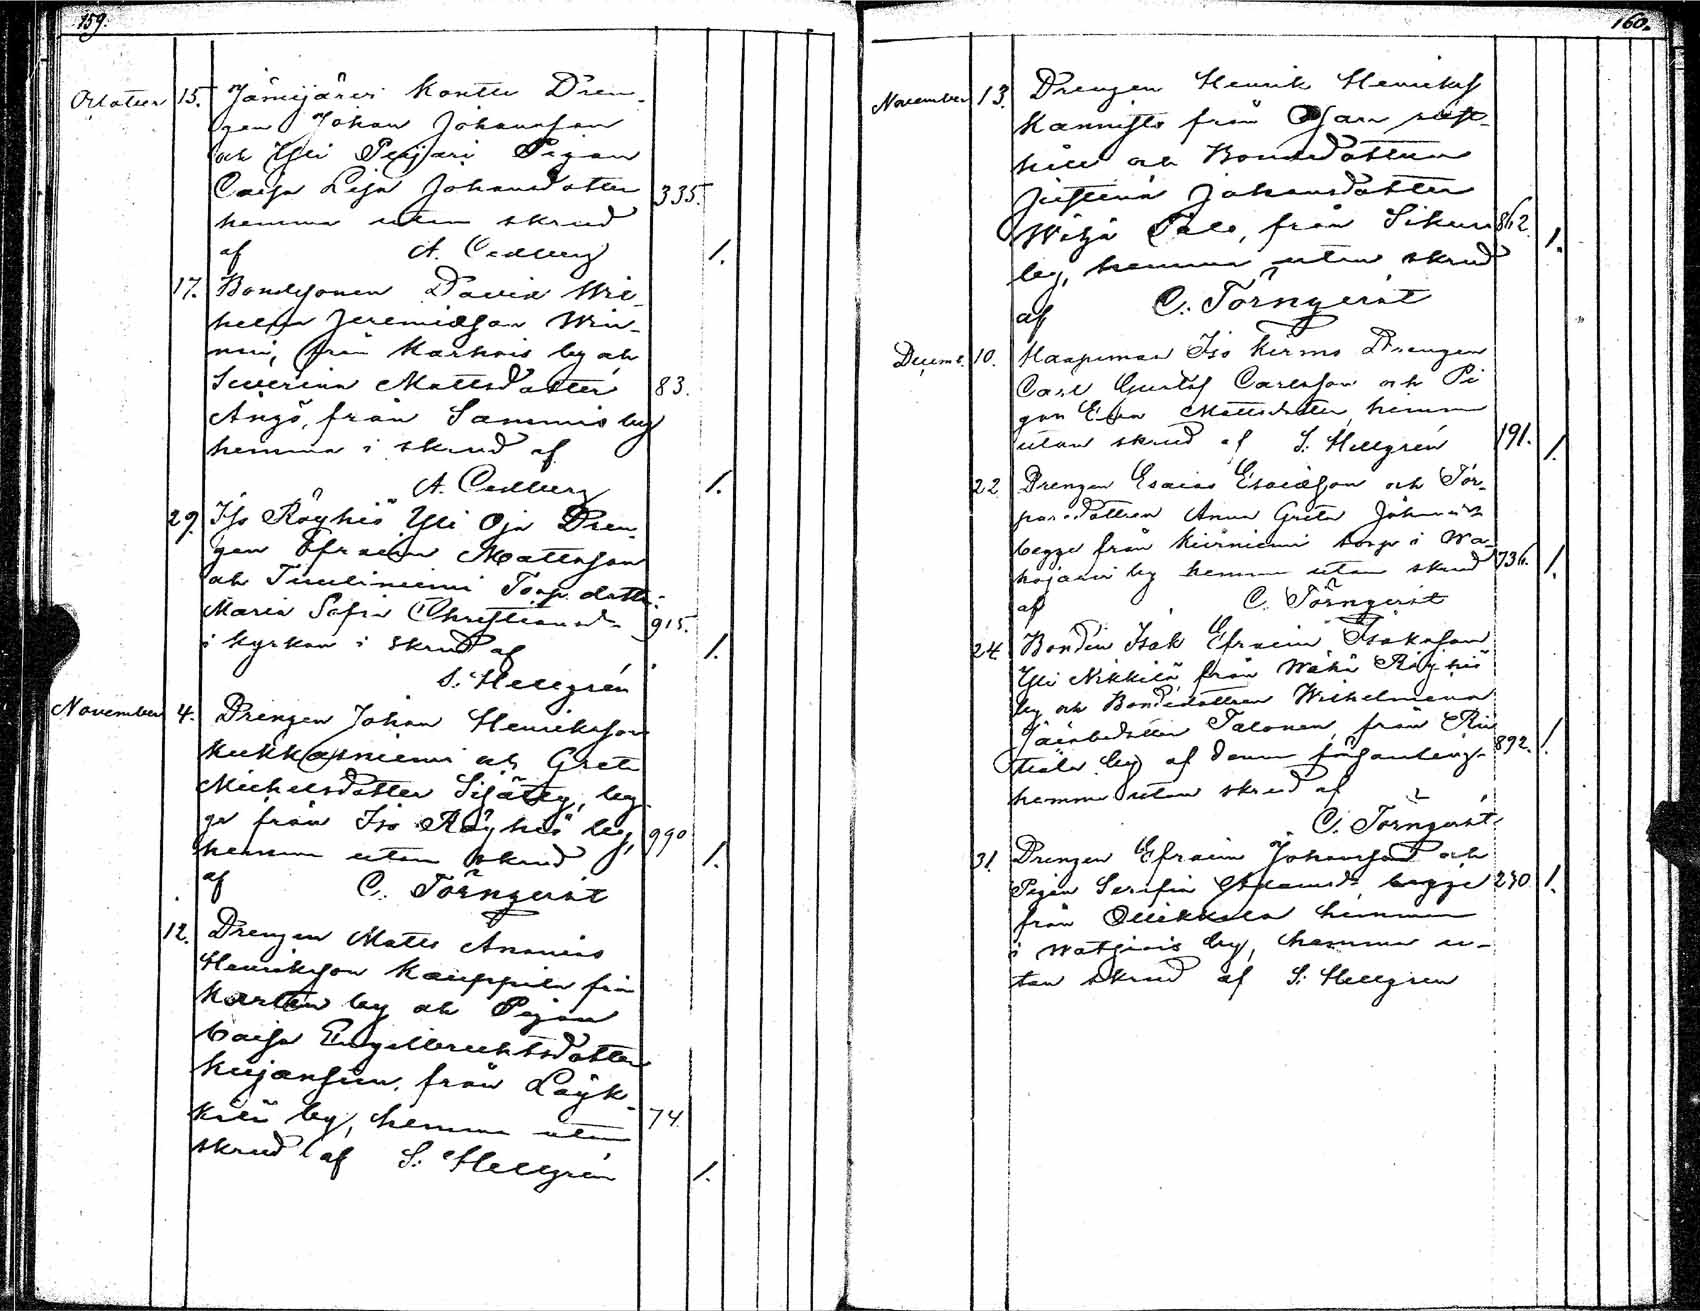 159.
October 15. Jämijärvi Kontti Dren-
gen Johan Johansson
och Yli Peijari Pigan
Caisa Lisa Johansdotter 335.
hemma utan skrud
af A. Cedberg 1.
17. Bondesonen David Wil-
helm Jeremiasson
från Karhois by och
Severina Mattsdotter 83.
Ängö, från Sammis by
hemma i skrud af
A. Cedberg 1.
29. Iso Röyhiö Yli Oja Dren-
gen Efraim Mattsson
och Tuuliniemi Torp. dottr:
Maria Sofia Christiansd- 915.
i kyrkan i skrud af 1.
S. Hellgrén
November 4. Drengen Johan Henriksson
Kukkasniemi och Greta
Michelsdotter beg-
ge från Iso Röyhiö by, 990
hemma utan skrud 1.
af C. Törnqvist
12. Drengen Matts Ananias
Henriksson Kauppila från
by och Pigan
Caisa Engelbrechtsdotter
Kujansuu, från Löyk-
kiö by, hemma utan 74.
skrud af S. Hellgrén 1.
160.
November 13. Drengen Henrik Henriks
Kannisto från
och Bondedottren
Justina Johansdotter
Pale, från Sikuri 862.
by, hemma utan skrud 1.
af C. Törnqvist
Decemb. 10. Haapimaa Iso Kerma Drengen
Carl Gustaf Carlsson och Pi
gan Eva Mattsdotter, hemma
utan skrud af S. Hellgrén 191. 1.
22. Drengen Esaias Esaiasson och Tor-
paredottren Anna Greta
begge från torp i Wa-
hojärvi by hemma utan skrud 736. 1.
af C. Törnqvist
24. Bonden Isak Efraim Isaksson
Yli Nikkilä från Wähä Röyhiö
by och Bondedottren Wilhelmina
Jacobsdotter Talonen, från Rii
tiala by af denna församling- 892. 1.
hemma utan skrud af
C. Törnqvist.
31. Drengen Efraim Johansson och
Pigan Serafia Adamsdr begge 230 1.
från Ollikkala hemman
i Watsiois by, hemma u-
tan skrud af S. Hellgren